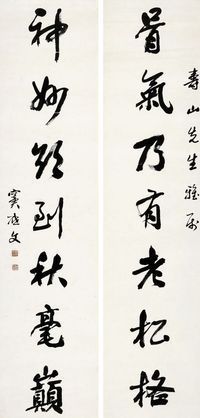 骨氣乃有老松格
壽山先生雅屬
神妙欲到秋毫巔
文